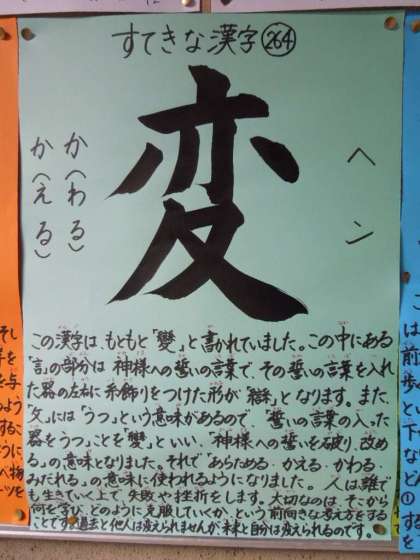 すてきな漢字264
変
ヘン
か(わる)
か(える)
この漢字は、もともと「變」と書かれていました。この中にある
「言」の部分は神様への誓いの言葉で、その誓いの言葉を入れ
た器の左右に糸飾りをつけた形が「䜌」となります。また、
「攵」には「うつ」という意味があるので、「誓いの言葉の入った
器をうつ」ことを「變」といい、「神様への誓いを破り、改め
る」の意味となりました。それで「あらためる・かえる・かわる・
みだれる」の意味に使われるようになりました。人は誰で
も生きていく上で、失敗や挫折をします。大切なのは、そこから
何を学び、どのように克服していくか、という前向きな考え方をする
ことです。過去と他人は変えられませんが、未来と自分は変えられるのです。